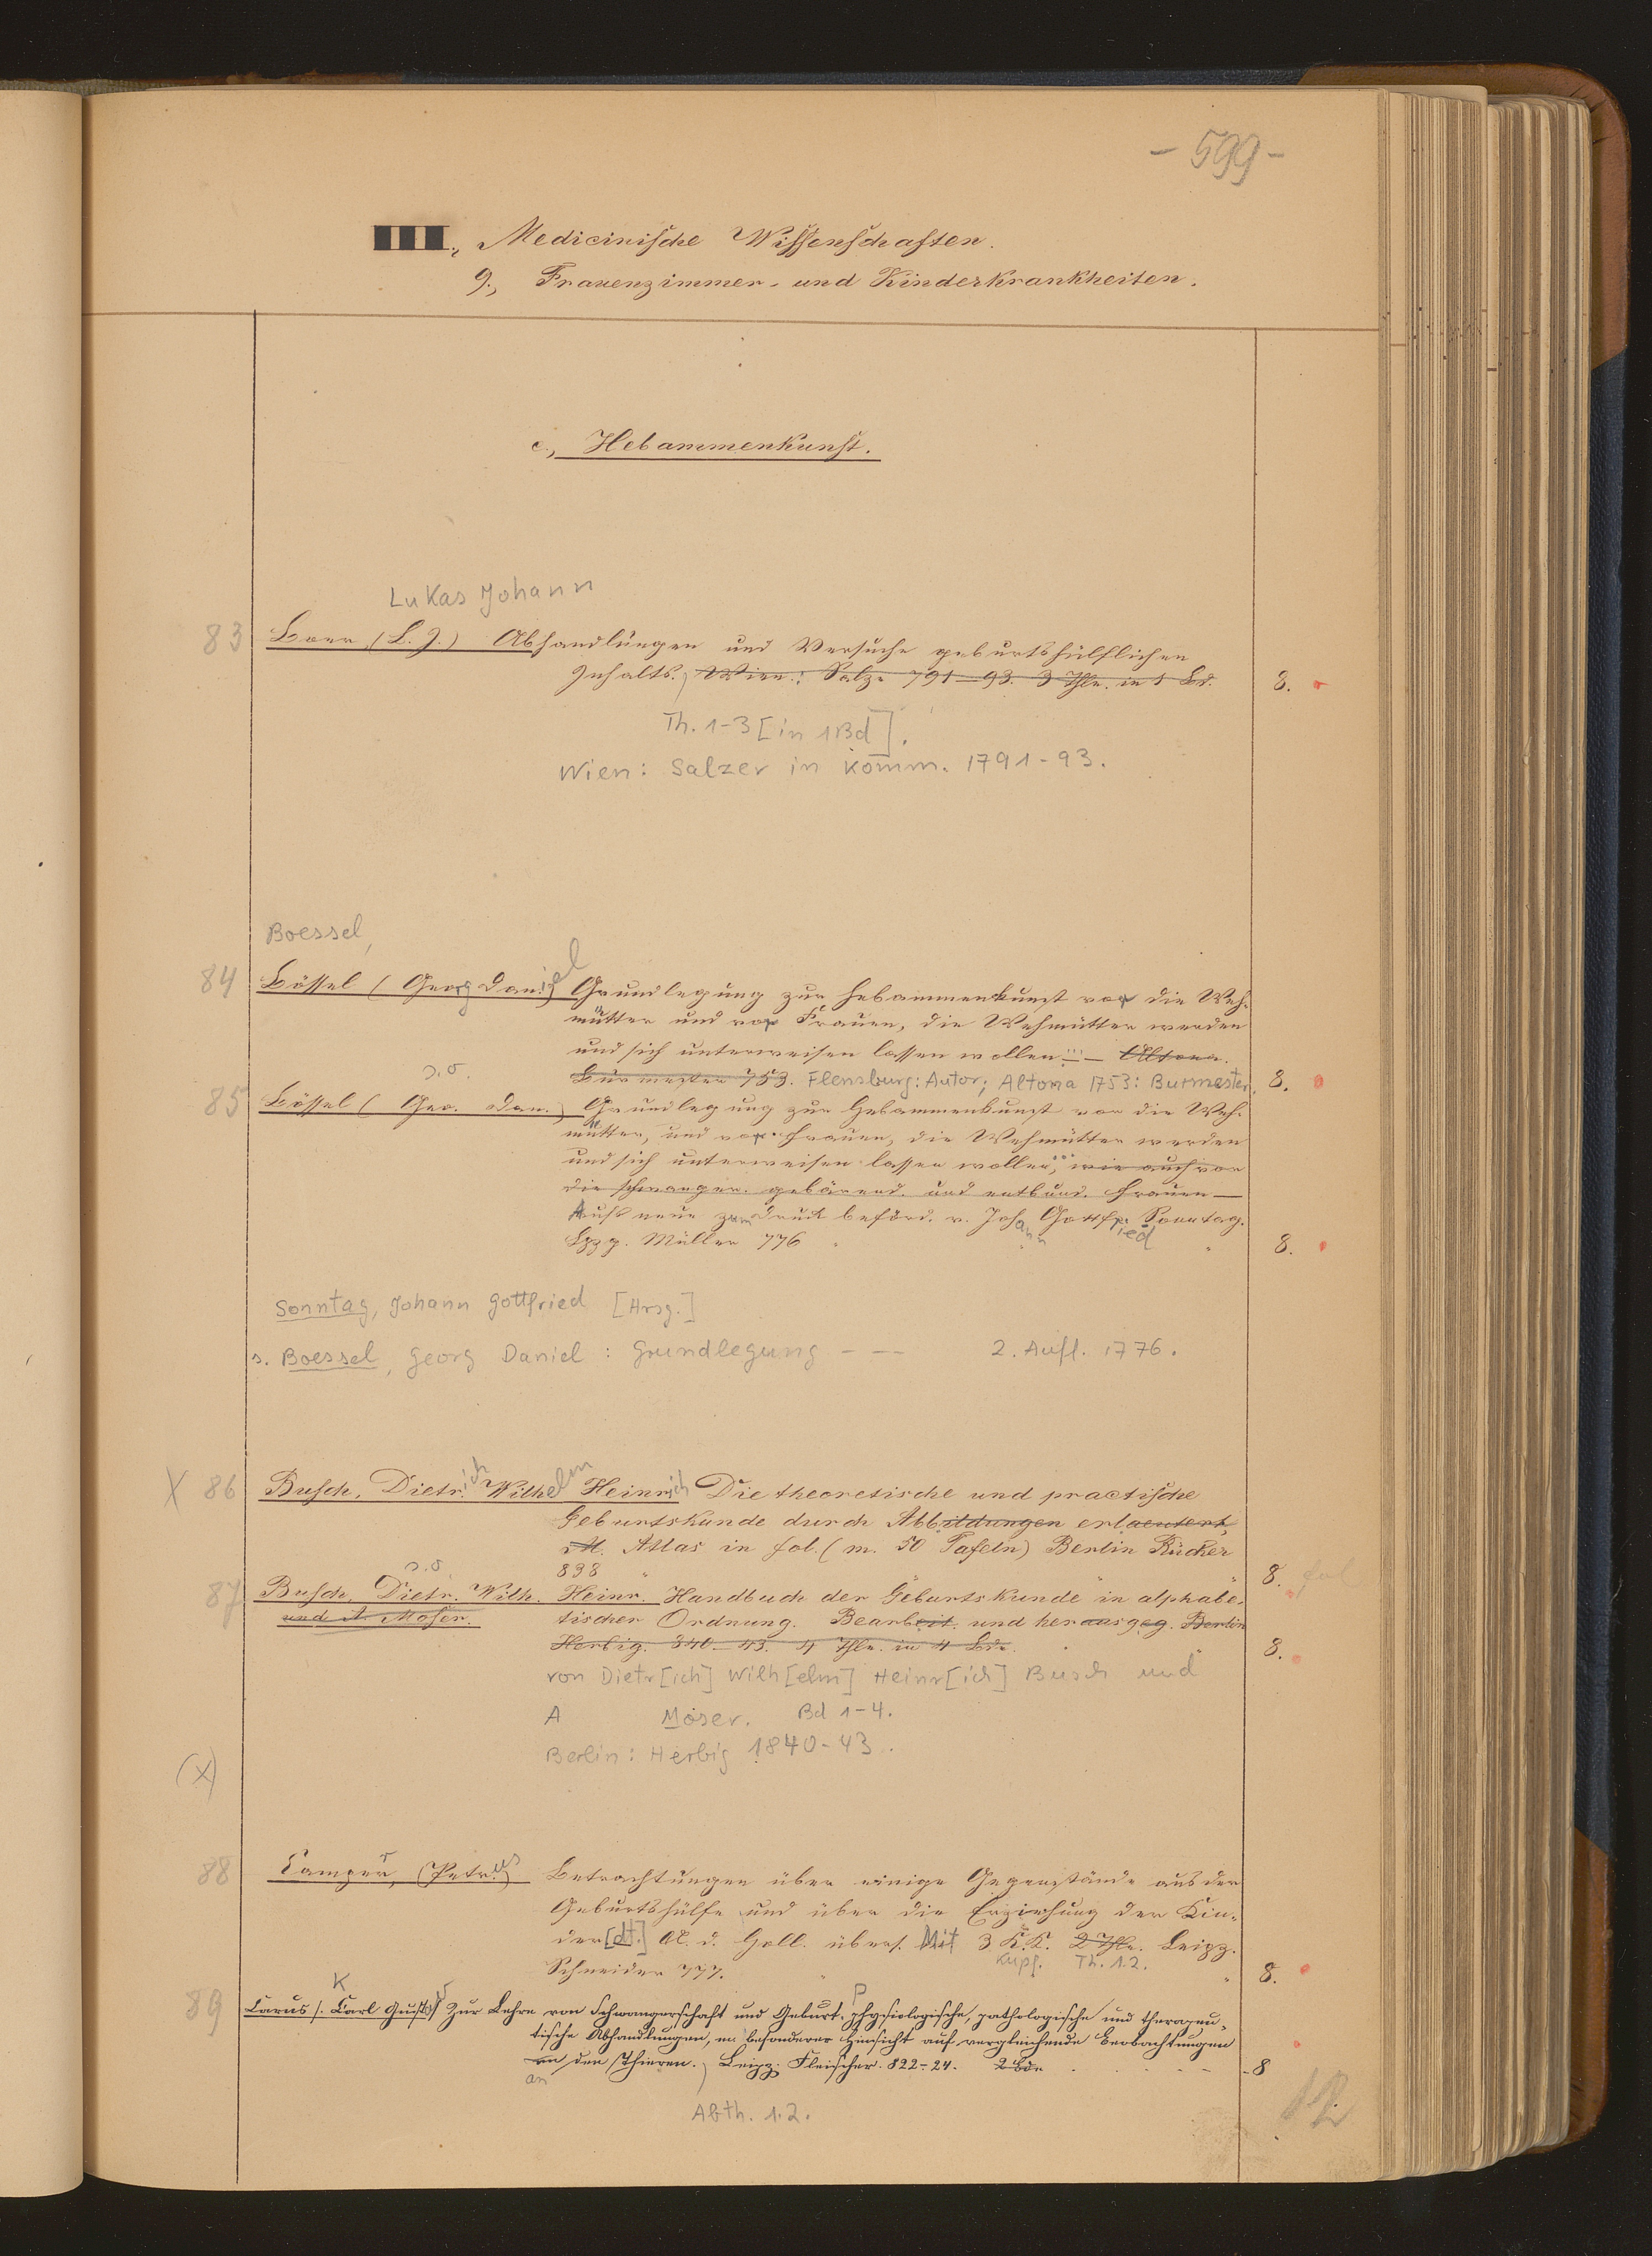 - 599 -
III., Medicinische Wissenschaften.
9., Frauenzimmer- und Kinderkrankheiten.
c., Hebammenkunst.
Lukas Johann
83 Boer, (L. J.) Abhandlungen und Versuche geburtshülflichen
Inhalts. Wien: Salz. 791-93. 3 Thle. in 1 Bd. 8.
Th. 1-3 [in 1 Bd].
Wien: Salzer in Komm. 1791-93.
Boessel,
84 Bössel (Georg Daniel) Grundlegung zur Hebammenkunst vor die Weh-
mütter und vor Frauen, die Wehmütter werden
und sich unterweisen lassen wollen ... — Altona.
Burmester 753. Flensburg: Autor; Altona 1753: Burmester. 8.
s. o.
85 Bössel (Geo. Dan.) Grundlegung zur Hebammenkunst vor die Weh-
mütter, und vor Frauen, die Wehmütter werden
und sich unterweisen lassen wollen, ... wie auch vor
die schwanger. gebärend. und entbund. Frauen —
Aufs neue zum Druck beförd. v. Johann Gottfried Sonntag.
Lpzg. Müller 776 8.
Sonntag, Johann Gottfried [Hrsg.]
s. Boessel, Georg Daniel: Grundlegung - -- 2. Aufl. 1776.
X 86 Busch, Dietrich Wilhelm Heinrich Die theoretische und practische
Geburtskunde durch Abbildungen erlaeutert,
M. Atlas in fol. (m. 50 Tafeln) Berlin Rücker
838 8. fol
s. o.
87 Busch, Dietr. Wilh. Heinr. Handbuch der Geburtskunde in alphabe-
und A. Moser. tischer Ordnung. Bearbeit. und herausgeg. Berlin
Herbig. 840-43. 4 Thle. in 4 Bde. 8.
von Dietr[ich] Wilh[elm] Heinr[ich] Busch und
A Moser. Bd 1-4.
Berlin: Herbig 1840-43.
(X)
88 Camper, (Petrus) Betrachtungen über einige Gegenstände aus der
Geburtshülfe und über die Erziehung der Kin-
der [dt.] A. d. Holl. übers. Mit 3 K.K. 2 Thle. Leipz.
Kupf. Th. 1.2.
Schneider 777. 8.
K P
89 Carus (Carl Gustav) Zur Lehre von Schwangerschaft und Geburt, physiologische, pathologische und therapeu-
tische Abhandlungen, m. besonderer Hinsicht auf vergleichende Beobachtungen
an den Thieren. Leipz. Fleischer. 822-24. 2 Bde. 8
an
Abth. 1.2.